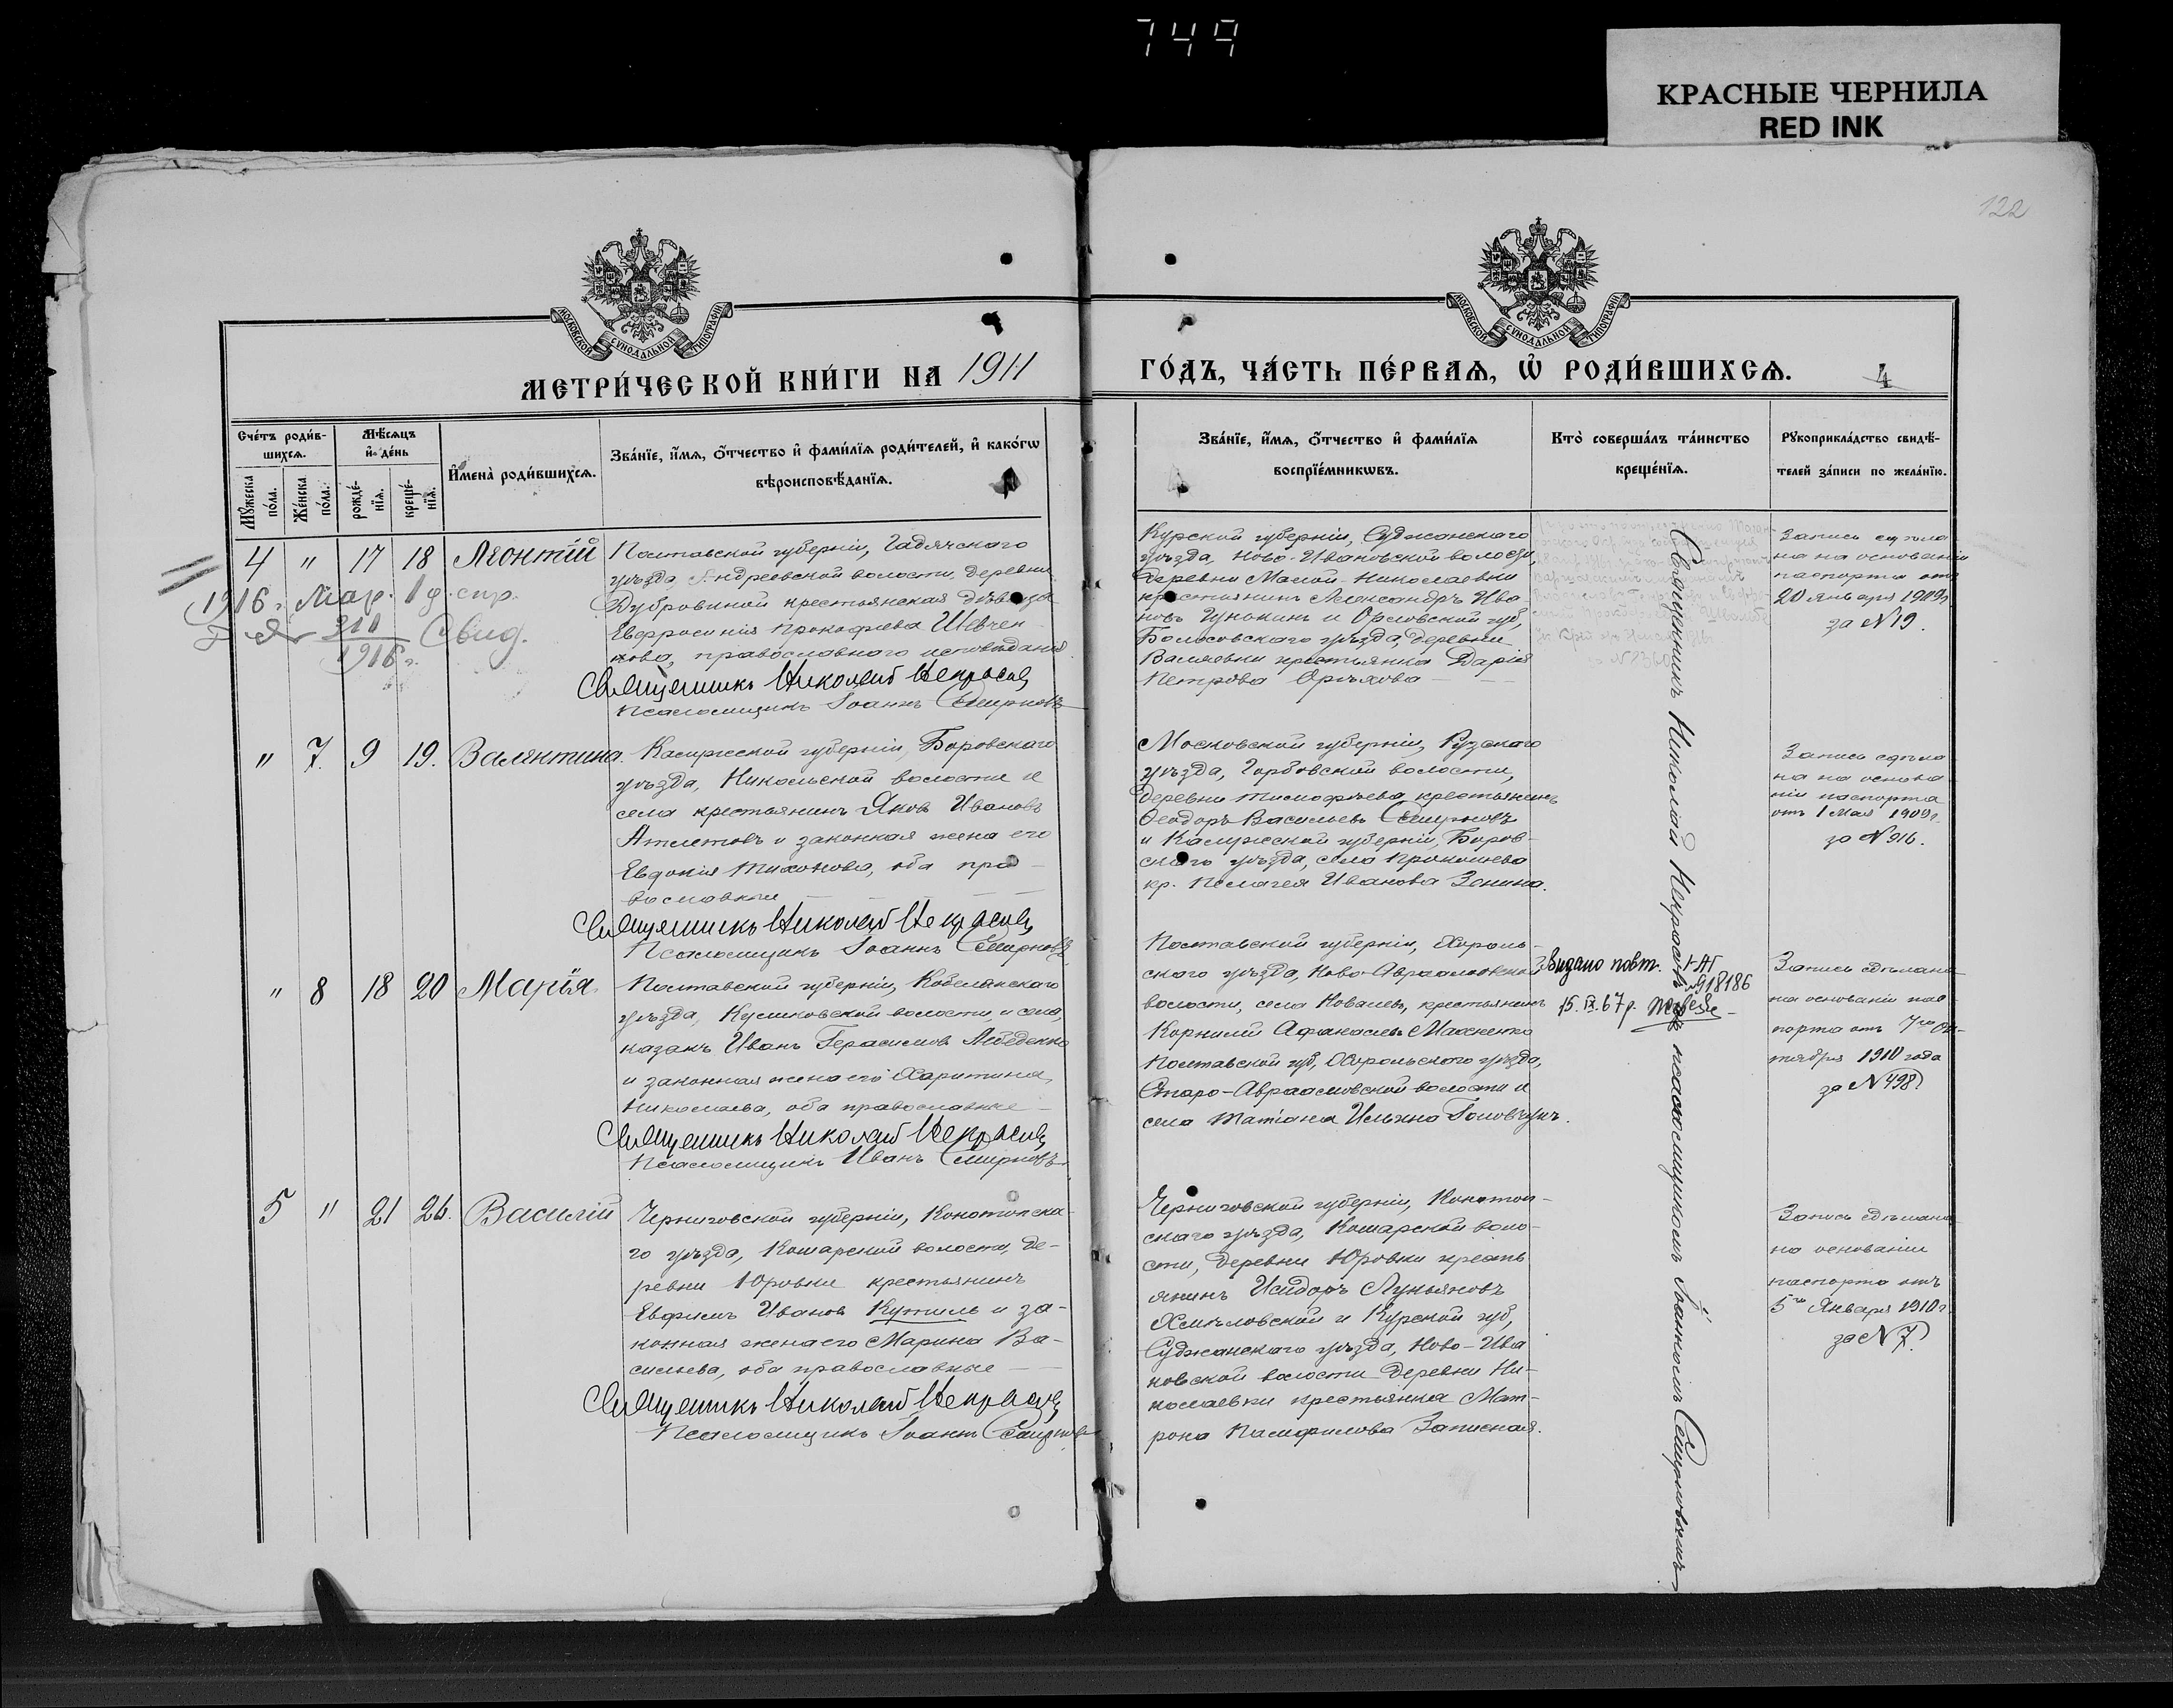 749
КРАСНЫЕ ЧЕРНИЛА
RED INK
122
МОСКОВСКОЙ СѴНОДАЛЬНОЙ ТИПОГРАФІИ
МОСКОВСКОЙ СѴНОДАЛЬНОЙ ТИПОГРАФІИ
МЕТРИ́ЧЕСКОЙ КНИ́ГИ НА 1911
ГО́ДЪ, ЧА́СТЬ ПЕ́РВАѦ, Ѡ҆ РОДИ́ВШИХСѦ. 4
Сче́тъ роди́в-
шихсѧ.
Мꙋ́жеска по́ла.
Же́нска по́ла.
Мѣ́сѧцъ и҆ де́нь
рожде́-нїѧ.
креще́-нїѧ.
И҆мена̀ роди́вшихсѧ.
Зва́нїе, и҆́мѧ, ѻ҆́тчество и҆ фами́лїѧ роди́телей, и҆ како́гѡ
вѣроисповѣ́данїѧ.
Зва́нїе, и҆́мѧ, ѻ҆́тчество и҆ фами́лїѧ
воспрїе́мникѡвъ.
Кто̀ соверша́лъ та́инство
креще́нїѧ.
Рꙋкоприкла́дство свидѣ́-
телей за́писи по жела́нїю.
4 " 17 18 Леонтій
1916 г. Мар. 1 д. спр.
210
1916 г.
Свид.
Полтавской губерніи, Гадячского
уѣзда Андреевской волости, деревни
Дубровиной крестьянская дѣвица
Евфросинія Прокофіева Шевчен
кова, православного исповѣданія
Священникъ Николай Некрасовъ
Псаломщикъ Іоаннъ Смирновъ
Курской губерніи, Суджанского
уѣзда, Ново-Ивановской волости,
деревни Малой-Николаевки
крестьянинъ Александръ Ива
новъ Гунькинъ и Орловской губ,
Болховского уѣзда, деревни
Василевки крестьянка Дарія
Петрова Орѣхова
Запись сдѣла
на на основаніи
паспорта отъ
20 января 1909г
за N 19.
" 7. 9 19. Валентина.
Калужской губерніи, Боровского
уѣзда, Никольской волости и
села крестьянинъ Яковъ Ивановъ
Атлетовъ и законная жена его
Евдокія Тихонова, оба пра-
вославные
Священникъ Николай Некрасовъ
Псаломщикъ Іоаннъ Смирновъ
Московской губерніи, Рузского
уѣзда, Горбовской волости,
деревни Тимофѣева крестьянинъ
Ѳеодоръ Васильевъ Смирновъ
и Калужской губерніи, Боров-
ского уѣзда, села Прокошева
кр. Пелагея Иванова Зенина.
Запись сдѣла
на на основа
ніи паспорта
отъ 1 мая 1909г.
за N 916.
" 8 18 20 Марія
Полтавской губерніи, Кобелякского
уѣзда, Кушиковской волости и села,
казакъ Иванъ Герасимовъ Лебеденко
и законная жена его Харитина
Николаева, оба православные
Священникъ Николай Некрасовъ
Псаломщикъ Иванъ Смирновъ
Полтавской губерніи, Хороль-
ского уѣзда, Ново-Аврамовской
волости, села Ковалевъ, крестьянинъ
Корнилій Афанасіевъ Махненко
Полтавской губ, Хорольского уѣзда,
Старо-Аврамовской волости и
села Татіана Ильина Головчукъ.
Видано повт. I-АГ
N918186
15.IX.67р.
Запись сдѣлана
на основаніи пас-
порта отъ 7го Ок-
тября 1910 года
за N 498
5 " 21 26. Василій
Черниговской губерніи, Конотопска-
го уѣзда, Кошарской волости, де-
ревни Юровки крестьянинъ
Евфимъ Ивановъ Кутиль и за-
конная жена его Марина Ва-
сильева, оба православные
Священникъ Николай Некрасовъ
Псаломщикъ Іоаннъ Смирновъ
Черниговской губерніи, Конотоп-
ского уѣзда, Кошарской воло-
сти, деревни Юровки кресть
янинъ Исидоръ Лукьяновъ
Хмѣловской и Курской губ,
Суджанского уѣзда, Ново-Ива
новской волости деревни Ни-
колаевки крестьянка Мат-
рона Памфилова Записная.
Запись сдѣлана
на основаніи
паспорта отъ
5го Января 1910г.
за N 7.
Священникъ Николай Некрасовъ съ псаломщикомъ Іоанномъ Смирновымъ